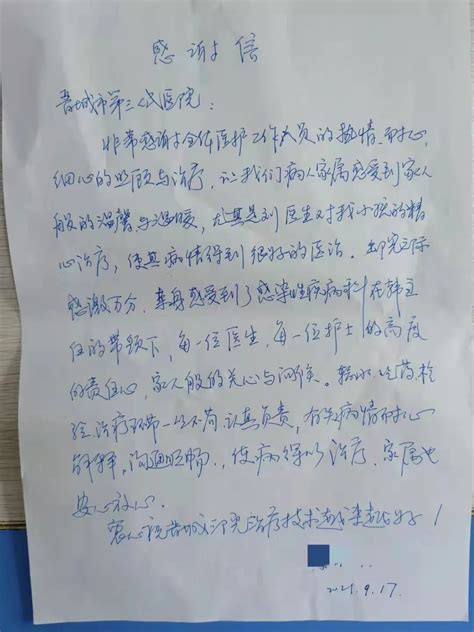 感谢信
晋城市第三人民医院：
非常感谢全体医护工作人员的热情、耐心、
细心的照顾与治疗，让我们病人家属感受到家人
般的温馨与温暖，尤其是刘医生对我小孩的精
心治疗，使其病情得到很好的医治。出院之际
感激万分，亲身感受到了感染性疾病科在韩主
任的带领下，每一位医生，每一位护士的高度
的责任心，家人般的关心与问候。输水、吃药、检
验、治疗环节一丝不苟、认真负责，有如病情耐心
解释，沟通顺畅、使病得以治疗、家属也
安心放心。
衷心祝 治疗技术越来越好！
2021.9.17